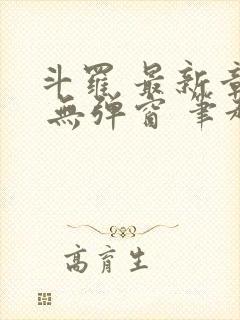 斗羅 最新章
無弹窗 筆
高育生